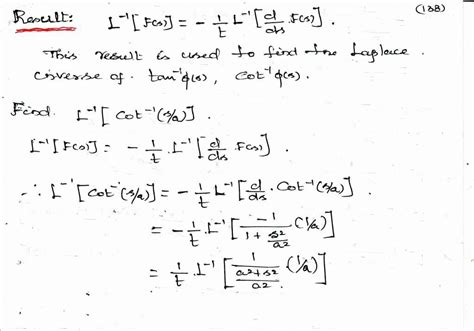 (188)
Result: L⁻¹[F(s)] = - 1/t L⁻¹[d/ds F(s)].
This result is used to find the Laplace
inverse of tan⁻¹φ(s), cot⁻¹φ(s).
Find L⁻¹[cot⁻¹(s/a)].
L⁻¹[F(s)] = - 1/t . L⁻¹[d/ds . F(s)].
∴ L⁻¹[cot⁻¹(s/a)] = - 1/t L⁻¹[d/ds . cot⁻¹(s/a)].
= - 1/t . L⁻¹[-1/(1 + s²/a²) (1/a)]
= 1/t . L⁻¹[1/((a²+s²)/a²) (1/a)]